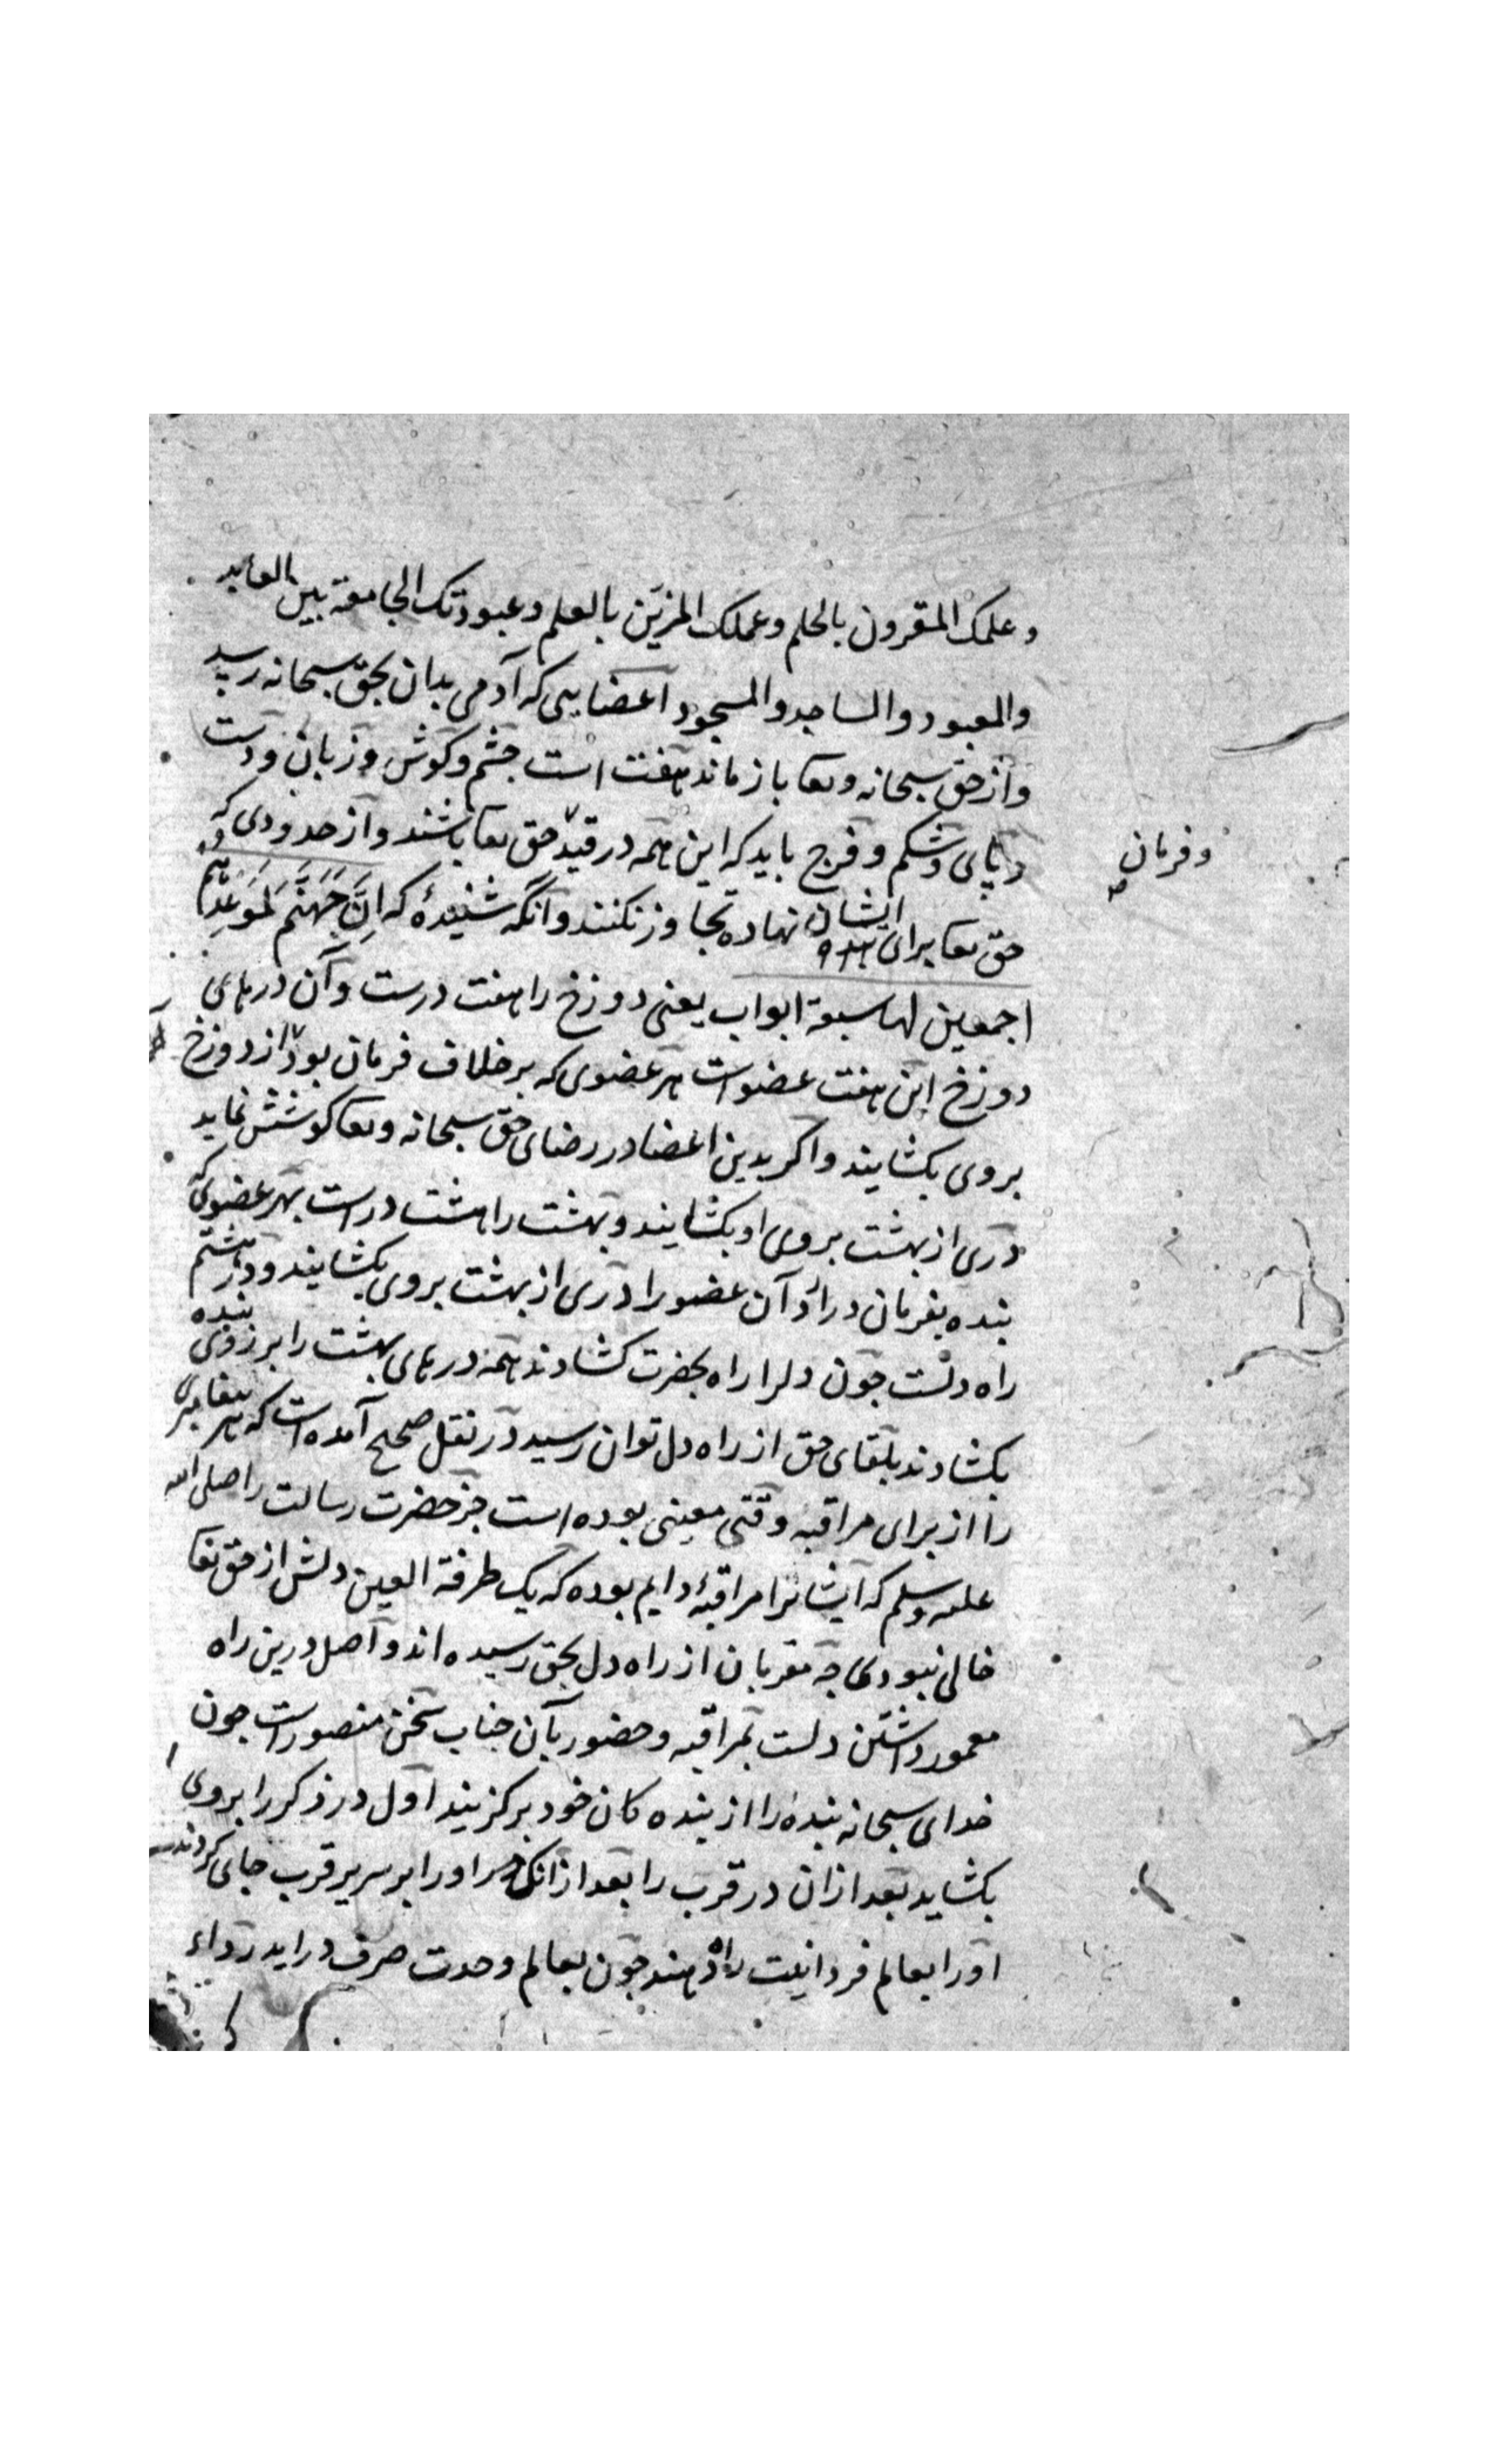 وعلمک المقرون بالحلم وعملک المزین بالعلم وعبودتک الجامعة بین العابد
والمعبود والساجد والمسجود اعضایی که آدمی بدان بحق سبحانه رسید
واز حق سبحانه وتعا باز ماند هفت است چشم وکوش وزبان ودست
وپای وشکم وفرج باید که این همه در قید حق تعا باشند واز حدودی که
وفرمان
حق تعا برای ایشان نهاده تجاوز نکنند وآنکه شنیدۀ که اِنَّ جَهَنَّمَ لَمَوعِدُهُم
اجمعین لها سبعة ابواب یعنی دوزخ را هفت درست وآن درهای
دوزخ این هفت عضو است هر عضوی که بر خلاف فرمان بود از دوزخ
بروی بکشایند واکر بدین اعضا در رضای حق سبحانه وتعا کوشش نماید
دری از بهشت بروی او بکشایند وبهشت را هشت در است بهر عضوی که
بنده بفرمان در آرد آن عضو را دری از بهشت بروی بکشایند ودر هشتم
راه دلست چون دلرا راه بحضرت کشادند همه درهای بهشت را بر روی بنده
بکشادند بلقای حق از راه دل توان رسید در نقل صحیح آمده است که هر پیغامبری
را از برای مراقبه وقتی معین بوده است جز حضرت رسالت را صلی الله
علیه وسلم که ایشانرا مراقبۀ دایم بوده که یک طرفة العین دلش از حق تعا
خالی نبودی چه مقربان از راه دل بحق رسیده اند واصل درین راه
معمور داشتن دلست بمراقبه وحضور بآن جناب سخن منصور است چون
خدای سبحانه بندۀ را از بنده کان خود برکزیند اول در ذکر را بروی
بکشاید بعد از ان در قرب را بعد از انک او را بر سریر قرب جای کردند
اورا بعالم فردانیت راه دهند چون بعالم وحدت صرف در اید رداء